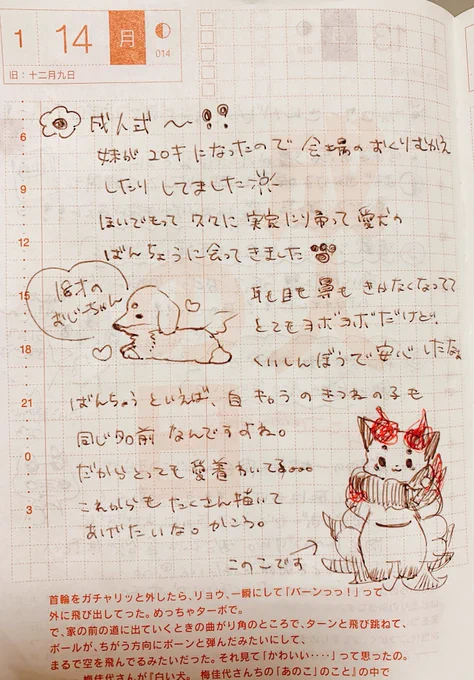 1
14
月
014
旧：十二月九日
6
9
12
15
18
21
0
3
成人式〜!!
妹が20才になったので会場のおくりむかえ
したりしてました
ほいでもって久々に実家に帰って愛犬の
ばんちょうに会ってきました
18才の
おじーちゃん
耳も目も鼻もきかなくなってて
とてもヨボヨボだけど、
くいしんぼうで安心したな。
ばんちょうといえば、自キャラのきつねの子も
同じ名前なんですよね。
だからとっても愛着わいてる。。。
これからもたくさん描いて
あげたいな。かこう。
このこです
首輪をガチャリッと外したら、リョウ、一瞬にして「バーンっっ！」って
外に飛び出してった。めっちゃターボで。
で、家の前の道に出ていくときの曲がり角のところで、ターンと飛び跳ねて、
ボールが、ちがう方向にボーンと弾んだみたいにして、
まるで空を飛んでるみたいだった。それ見て「かわいい‥‥」って思ったの。
梅佳代さんが『白い犬。梅佳代さんちの「あのこ」のこと』の中で